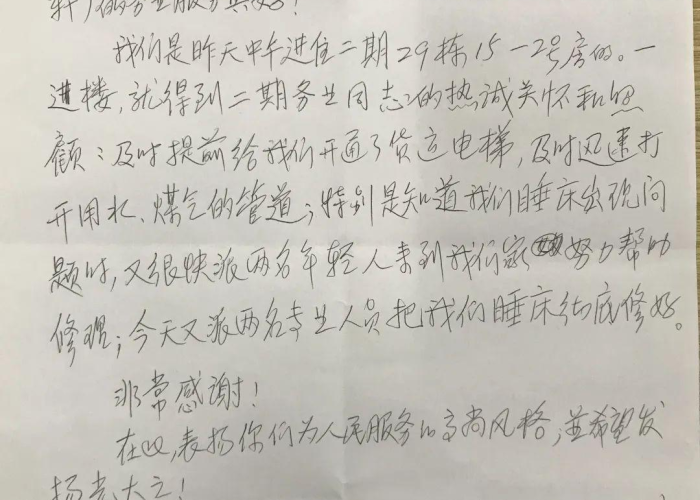 的务业服务真好！
我们是昨天中午进住二期29栋15-2号房的。一
进楼，就得到二期务业同志的热诚关怀和照
顾：及时提前给我们开通了货运电梯，及时迅速打
开用水、煤气的管道；特别是知道我们睡床出现问
题时，又很快派两名年轻人来到我们家努力帮助
修理；今天又派两名专业人员把我们睡床彻底修好。
非常感谢！
在此，表扬你们为人民服务的高尚风格，并希望发
扬光大之！